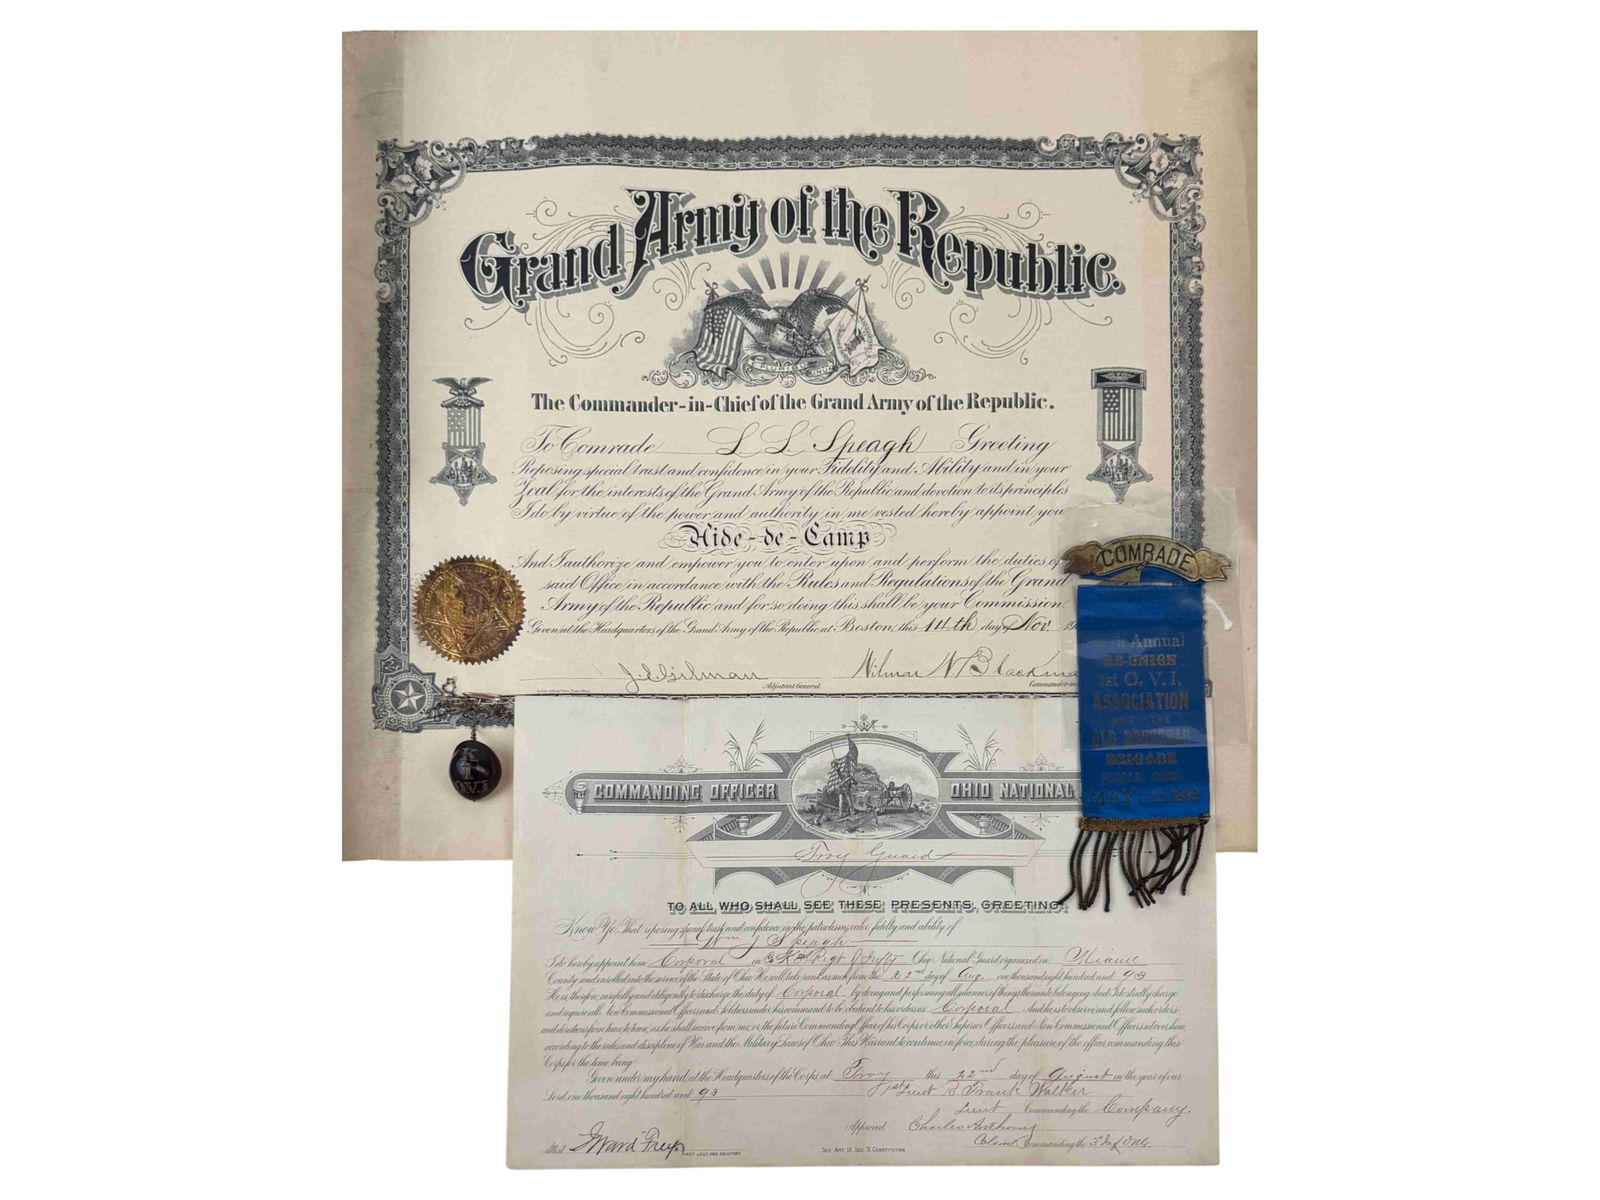 Grand Army of the Republic.
E PLURIBUS UNUM
The Commander-in-Chief of the Grand Army of the Republic.
To Comrade L L Speagh Greeting
Reposing special trust and confidence in your Fidelity and Ability and in your
Zeal for the interests of the Grand Army of the Republic and devotion to its principles
I do by virtue of the power and authority in me vested hereby appoint you
Aide-de-Camp
And I authorize and empower you to enter upon and perform the duties of
said Office in accordance with the Rules and Regulations of the Grand
Army of the Republic and for so doing this shall be your Commission.
Given at the Headquarters of the Grand Army of the Republic at Boston, this 14th day of Nov. 19
J. E. Gilman
Adjutant General.
Wilmon W. Blackma
Commander-in
COMRADE
Annual
RE-UNION
1st O. V. I.
ASSOCIATION
AND THE
OLD
BRIGADE
MAY
K
1
O.V.I.
COMMANDING OFFICER OHIO NATIONAL
Troy Guard
TO ALL WHO SHALL SEE THESE PRESENTS, GREETING:
Know Ye, That reposing special trust and confidence in the patriotism, valor, fidelity and ability of
Wm J Speagh
I do hereby appoint him Corporal in Co K 3d Regt Infty Ohio National Guard organized in Miami
County and enrolled into the service of the State of Ohio. He will take rank as such from the 22nd day of Aug. one thousand eight hundred and 93
He is therefore, carefully and diligently to discharge the duty of Corporal by doing and performing all manner of things thereunto belonging. And I do strictly charge
and require all Non-Commissioned Officers and Soldiers under his command to be obedient to his orders as Corporal. And he is to observe and follow such orders
and directions from time to time, as he shall receive from me, or the future Commanding Officer of his Corps or other Superior Officers and Non-Commissioned Officers set over him,
according to the rules and discipline of War and the Military Laws of Ohio. This Warrant to continue in force, during the pleasure of the officer commanding this
Corps for the time being.
Given under my hand, at the Headquarters of the Corps, at Troy this 22nd day of August in the year of our
Lord, one thousand eight hundred and 93
1st Lieut. B. Frank Walker
Lieut Commanding the Company.
Approved Charles Anthony
Colonel Commanding the 3" Inf O.N.G.
Attest
FIRST LIEUT. AND ADJUTANT
SEE ART. IX, SEC. 3, CONSTITUTION